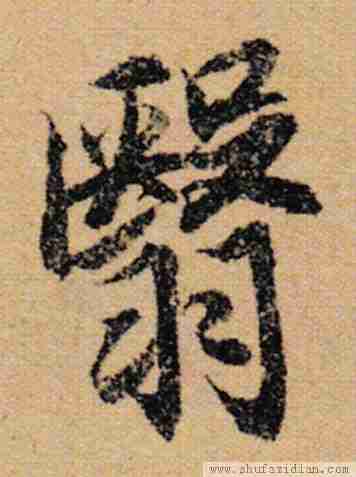 翳
www.shufazidian.com